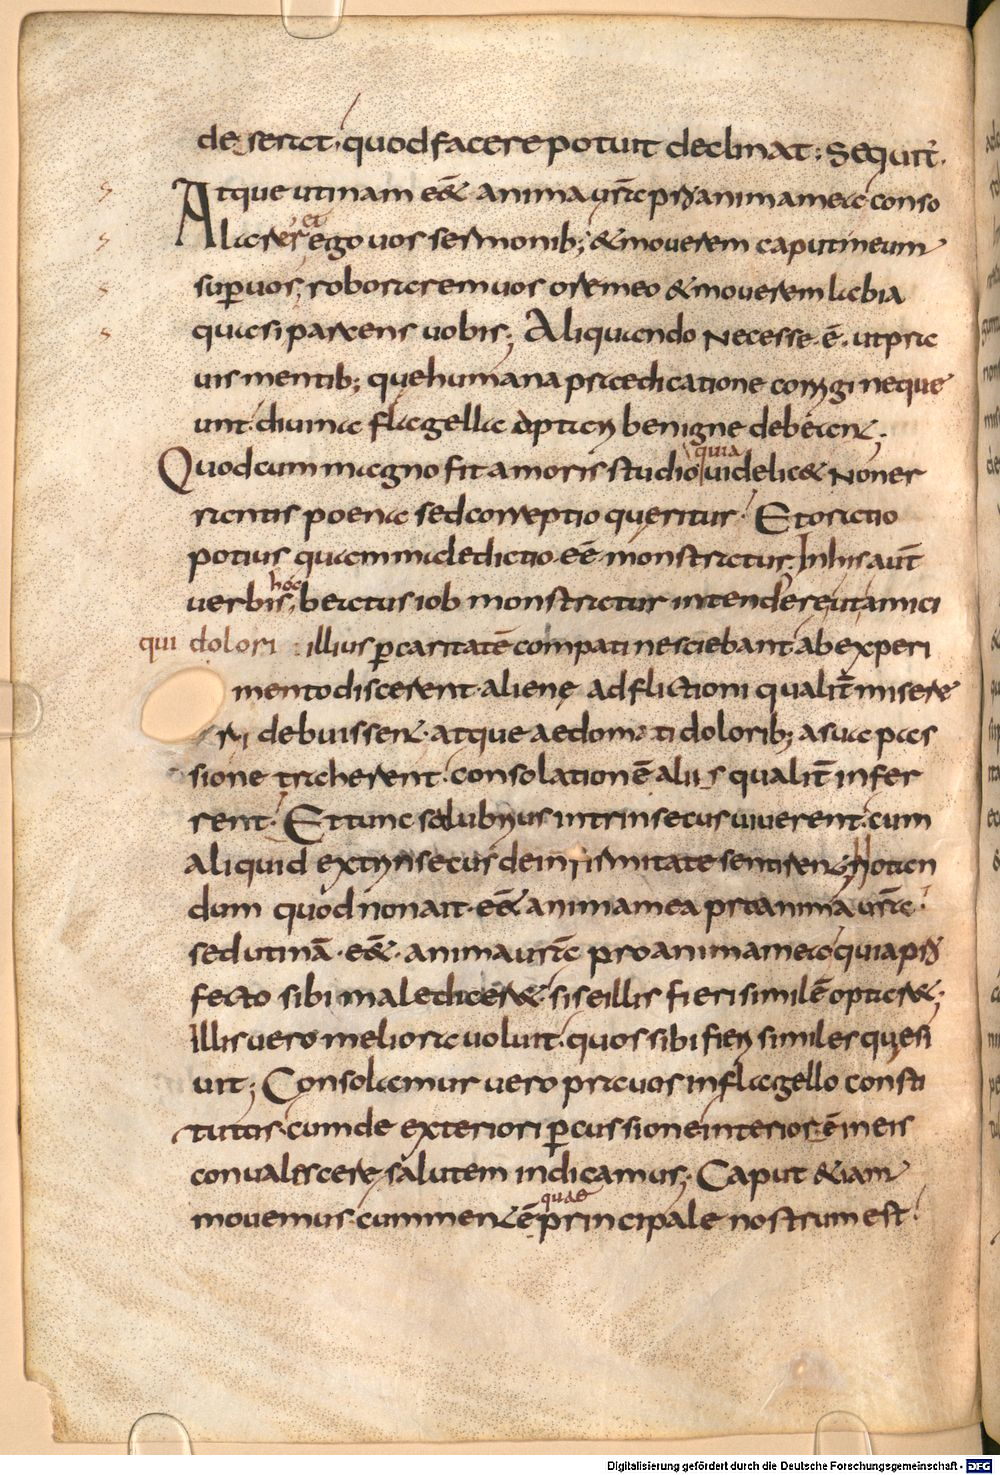 deserat. quod facere potuit declinat: Sequit̄.
Atque utinam eē& anima ur̄a p̱ anima mea conso
larer et ego uos sermonib; & mouerem caput meum
sup̱ uos; roborarem uos ore meo & mouerem labia
quasi parcens uobis; Aliquando Necesse .ē. ut pra
uis mentib; que humana praedicatione corrigi neque
unt. diuina flagella optari benigne debean&;
Quod cum magno fit amoris studio quia uidelic& Non er
rantis poena sed correptio queritur. Et oratio
potius quam maledictio eē monstratur. In his aut̄
uerbis, hoc beatus iob monstratur intendere ut amici
qui dolori illius p̱ caritatē compati nesciebant ab experi
mento discerent. aliene adflictioni qualit̄ misere
ri debuissen&. atque aedomati dolorib; a sua pas
sione traherent. consolationē aliis qualit̄ infer
rent. Et tunc salubrius intrinsecus uiuerent. cum
aliquid extrinsecus de infirmitate sentiren&. Notan
dum quod non ait. eē& anima mea pro anima ur̄a.
sed utinā. eē&. anima ur̄a pro anima mea quia p̱
fecto sibi maledicer& si se illis fieri similē optar&;
Illis uero meliora uoluit. quos sibi fieri similes quesi
uit; Consolamur uero prauos in flagello consti
tutos. cum de exteriori p̱cussione interiorē in eis
conualescere salutem indicamus; Caput &iam
mouemus. cum men&ē quae principale nostrum est.
Digitalisierung gefördert durch die Deutsche Forschungsgemeinschaft - DFG